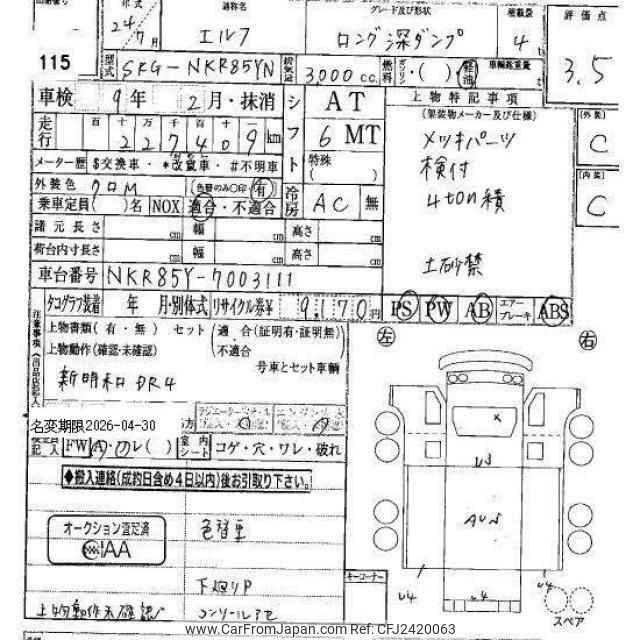 年式 通称名 グレード及び形状 積載量 評価点
115
24年7月 エルフ ロング深ダンプ 4t 3.5
型式 SKG-NKR85YN 排気量 3,000 c.c. 燃料 ガソリン・( ) 軽油 車輌総重量
車検 9年 2月・抹消 シフト AT 上物特記事項
6 MT (架装物メーカー及び仕様)
走行 百 十 万 千 百 十 一
227409 km
メッキパーツ
(外装) C
メーター歴 $交換車・*改竄車・#不明車 特殊( ) 検付
外装色 クロM (色替のみ○印 有) 冷房 AC 無 4ton積
(内装) C
乗車定員( )名 NOX 適合・不適合
諸元長さ cm 幅 cm 高さ cm
荷台内寸長さ cm 幅 cm 高さ cm 土砂禁
車台番号 NKR85Y-7003111
タコグラフ装着 年 月・別体式 リサイクル券¥ 9,170円 PS PW AB エアーブレーキ ABS
注意事項
上物書類(有・無) セット(適合(証明有・証明無)
上物動作(確認・未確認) 不適合
号車とセット車輌
左 右
新明和 DR4
名変期限2026-04-30
FW ( ) 室内シート コゲ・穴・ワレ・破れ
◆搬入連絡(成約日含め4日以内)後お引取り下さい。
オークション査定済
IAA
色替至
下廻りP
上物動作未確認
キーコーナー
スペア
www.CarFromJapan.com Ref: CFJ2420063